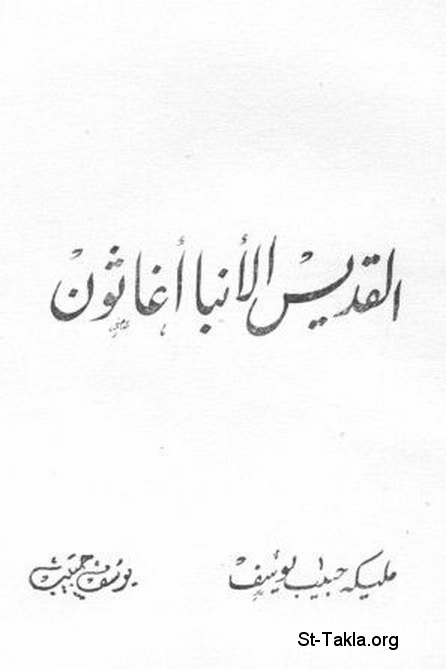 القديس الأنبا أغاثون
مليكه حبيب يوسف
يوسف حبيب
St-Takla.org